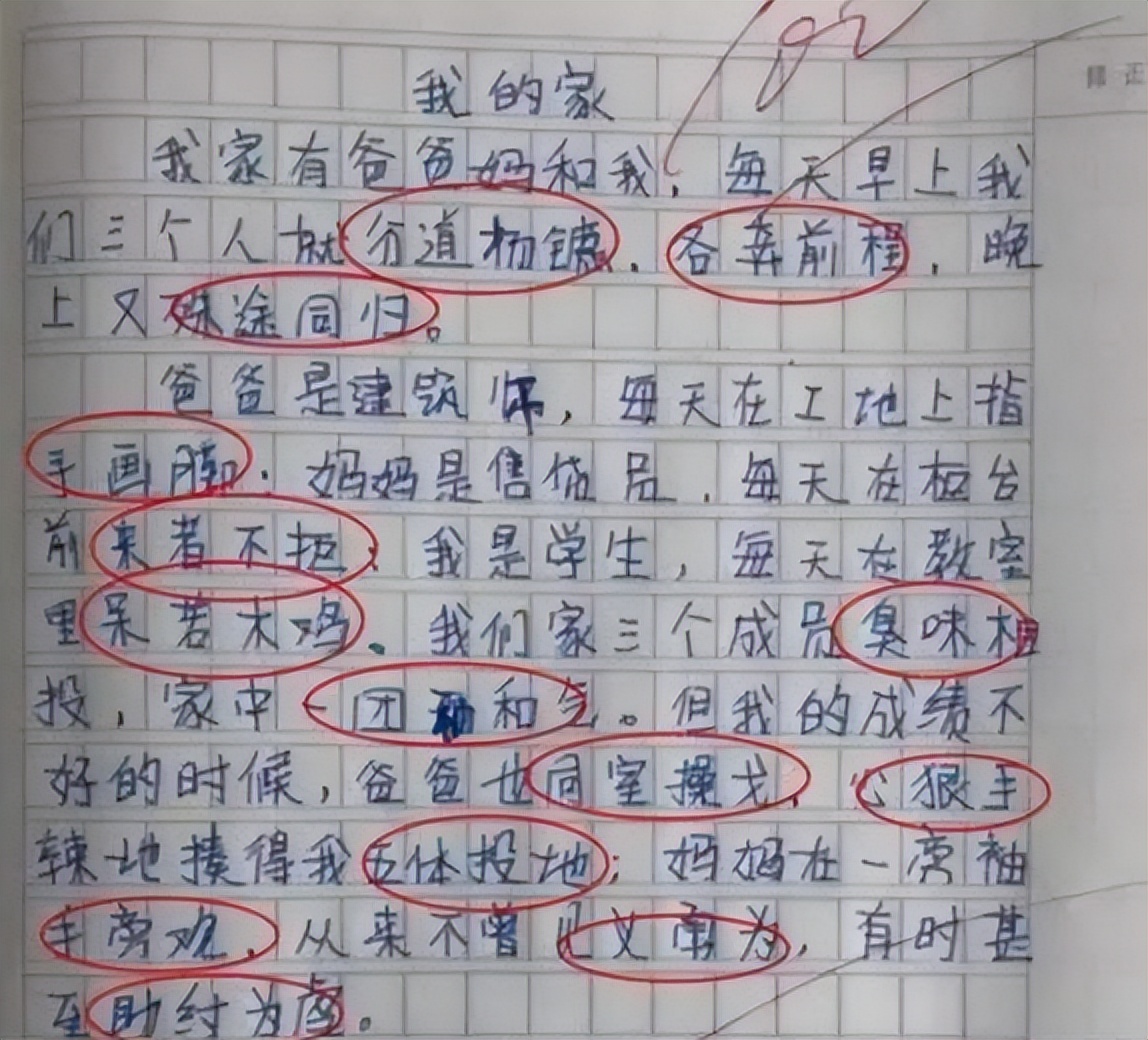 我的家
我家有爸爸妈和我,每天早上我
们三个人就分道杨镳,各奔前程,晚
上又殊途同归。
爸爸是建筑师,每天在工地上指
手画脚.妈妈是售货员,每天在柜台
前来者不拒.我是学生,每天在教室
里呆若木鸡.我们家三个成员臭味相
投,家中一团和气。但我的成绩不
好的时候,爸爸也同室操戈,心狠手
辣地揍得我五体投地;妈妈在一旁袖
手旁观,从来不曾见义勇为,有时甚
至助纣为虐。